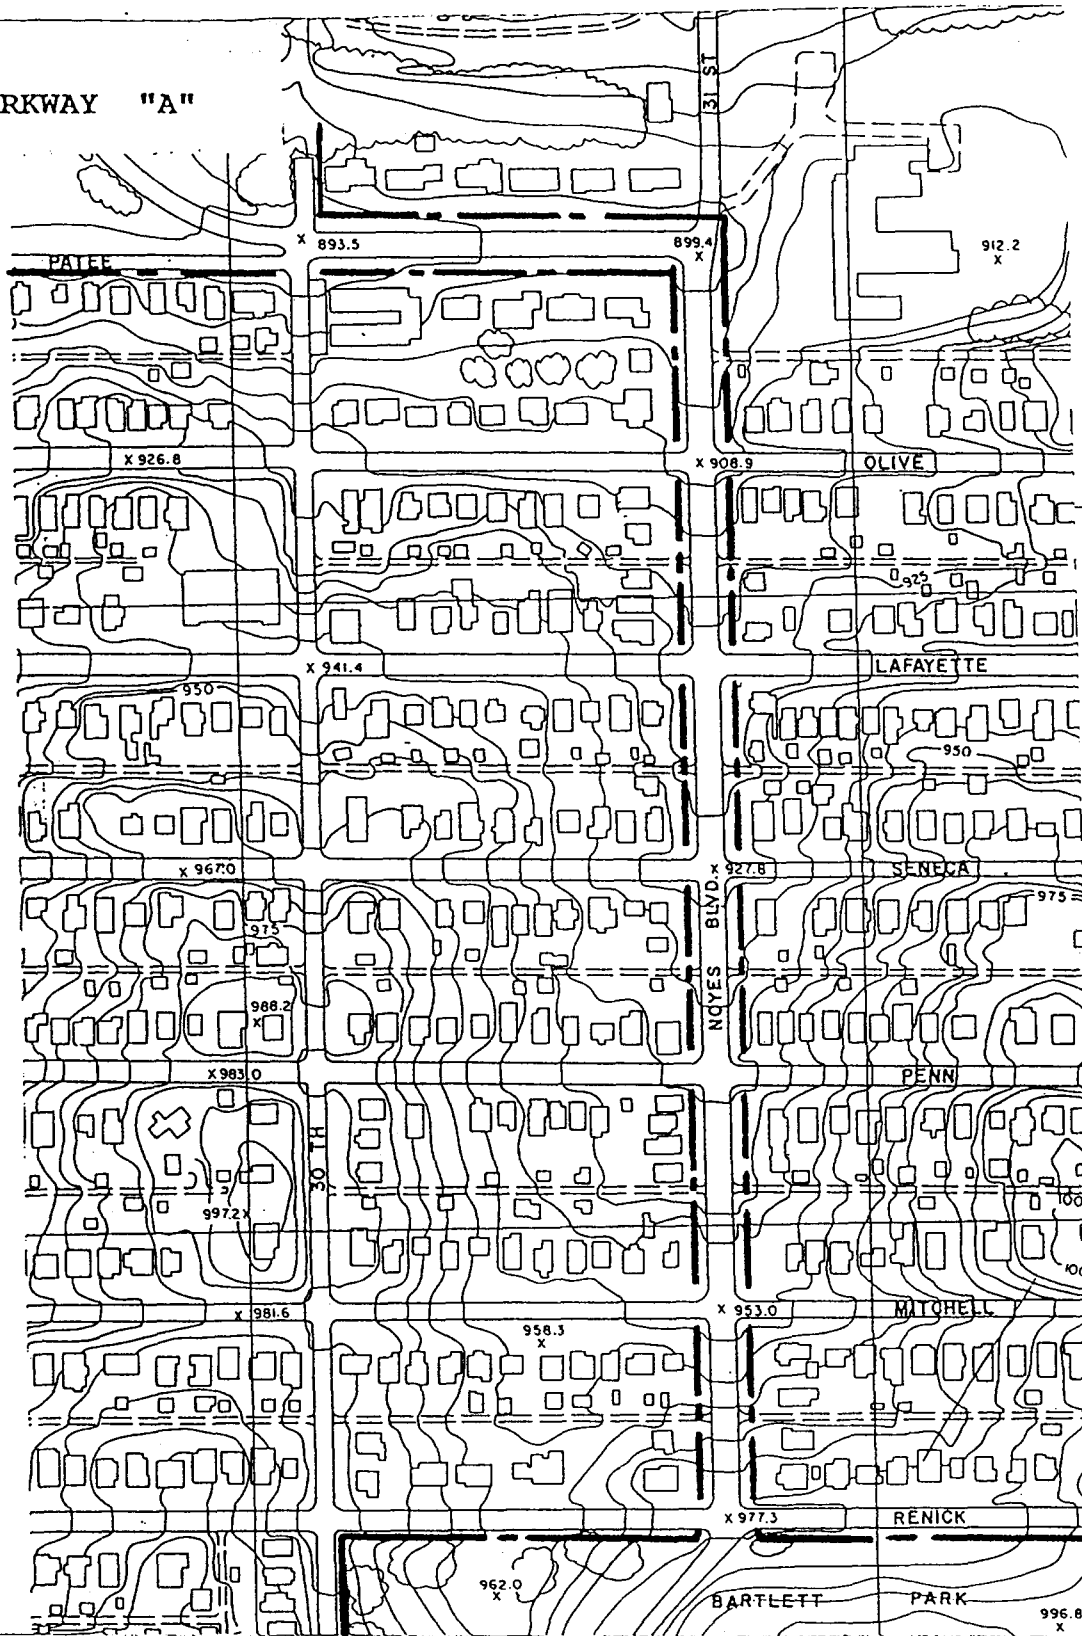 RKWAY "A"
31 ST
893.5
899.4
912.2
PATEE
926.8
908.9
OLIVE
925
941.4
LAFAYETTE
950
950
967.0
927.8
SENECA
975
975
NOYES BLVD
988.2
983.0
PENN
30 TH
997.2
981.6
953.0
MITCHELL
958.3
977.3
RENICK
962.0
BARTLETT PARK
996.8